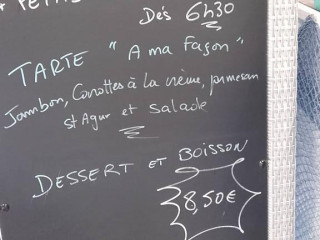 Dés 6h30
TARTE " A ma façon "
Jambon, Carottes à la crème, parmesan
st Agur et Salade
DESSERT ET BOISSON
8,50€